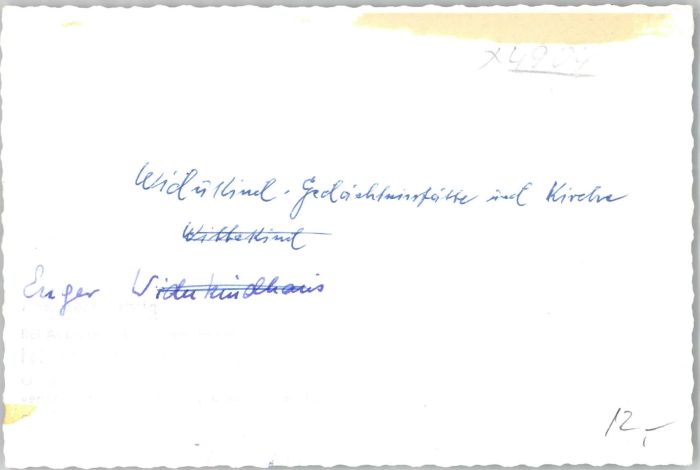 x4904
Widukind-Gedächtnisstätte und Kirche
Wittekind
Enger Widukindhaus
12,-